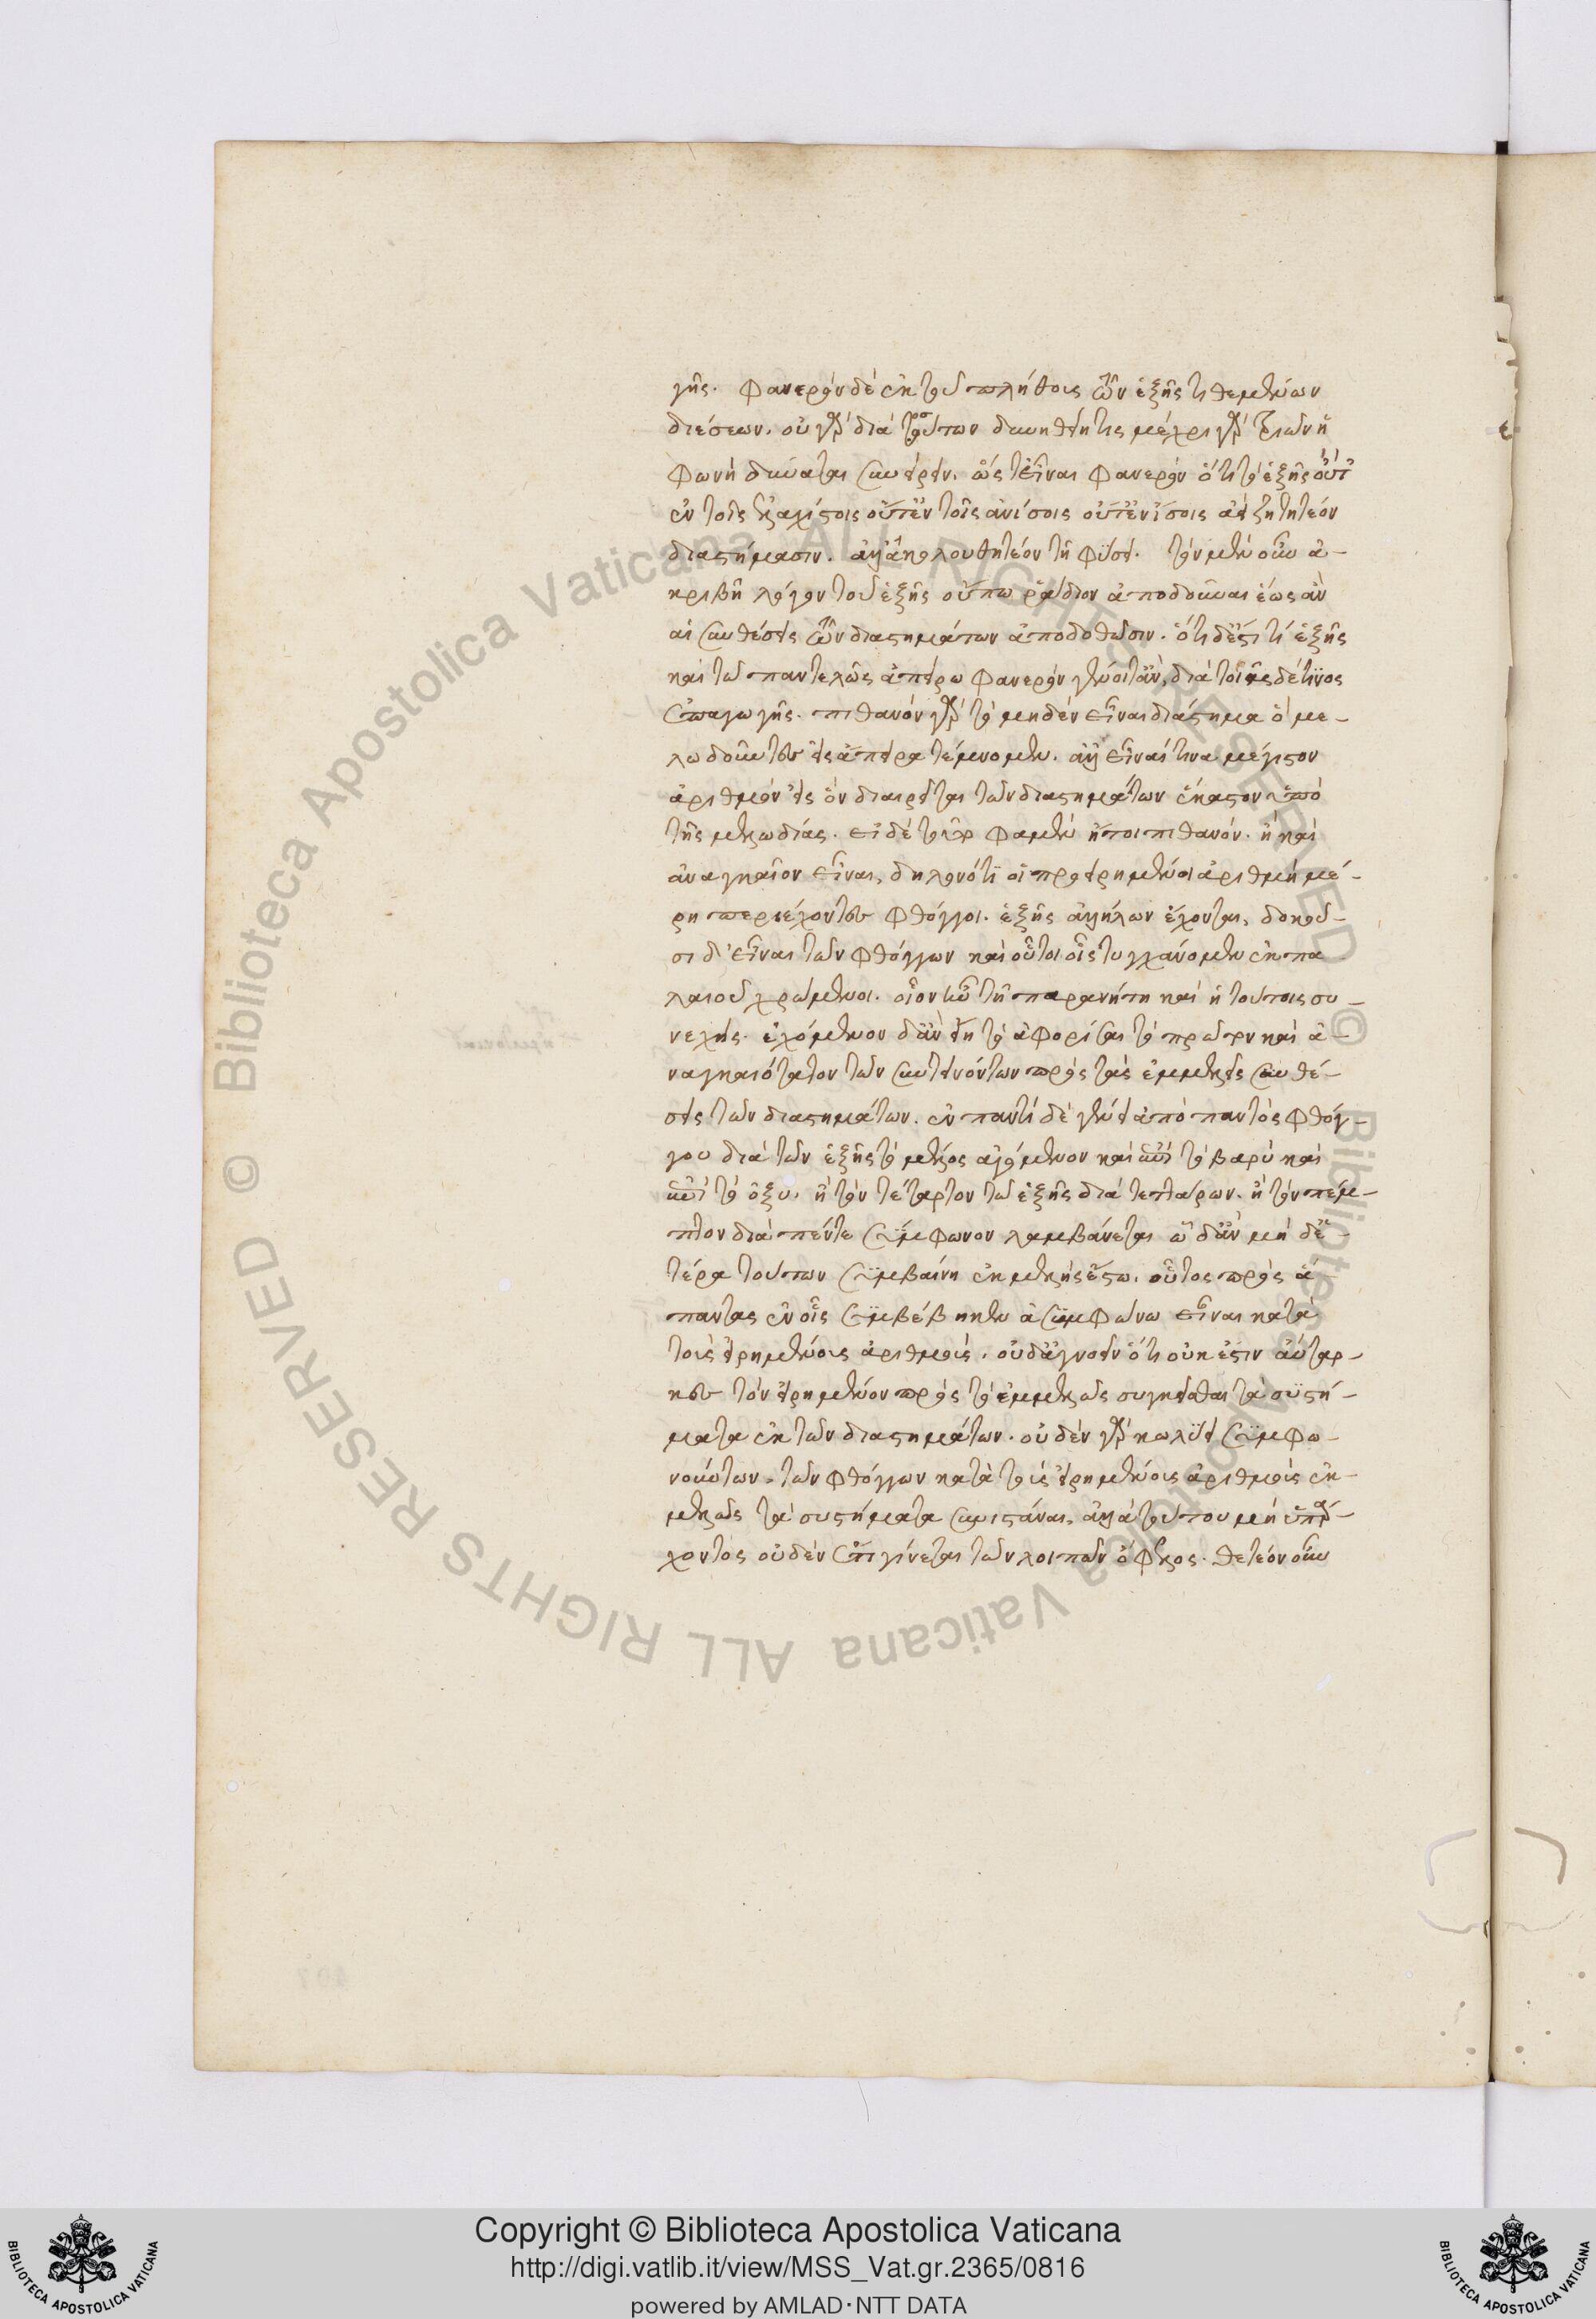 γῆς. φανερόν δὲ ἐκ τοῦ πλήθους τῶν ἑξῆς τιθεμένων
διέσεων. οὐ γὰρ διὰ τοσούτων δυνηθείη τις μέχρι γὰρ τριῶν ἡ
φωνὴ δύναται συνείρειν. ὥς τ' εἶναι φανερὸν ὅτι τὸ ἑξῆς οὔτ'
ἐν τοῖς ἐλαχίστοις οὔτ' ἐν τοῖς ἀνίσοις οὔτ' ἐν ἴσοις ἀεὶ ζητητέον
διαστήμασιν. ἀλλ' ἀκολουθητέον τῇ φύσει. τὸν μὲν οὖν ἀ-
κριβῆ λόγον τοῦ ἑξῆς οὔπω ῥᾴδιον ἀποδοῦναι ἕως ἂν
αἱ συνθέσεις τῶν διαστημάτων ἀποδοθῶσιν. ὅτι δ' ἔστι τι ἑξῆς
καὶ τῷ παντελῶς ἀπείρῳ φανερὸν γένοιτ' ἂν, διὰ τοιᾶς δέ τινος
ἐπαγωγῆς. πιθανὸν γὰρ τὸ μηδὲν εἶναι διάστημα ὃ με-
λῳδοῦντες εἰς ἄπειρα τέμνομεν. ἀλλ' εἶναί τινα μέγιστον
ἀριθμὸν εἰς ὃν διαιρεῖται τῶν διαστημάτων ἕκαστον ὑπὸ
τῆς μελῳδίας. εἰ δὲ τοῦτό φαμεν ἤτοι πιθανόν. ἢ καὶ
ἀναγκαῖον εἶναι, δηλονότι οἱ προειρημένοι ἀριθμῇ μέ-
ρη περιέχοντες φθόγγοι. ἑξῆς ἀλλήλων ἔχονται, δοκοῦ-
σι δ' εἶναι τῶν φθόγγων καὶ οὗτοι οἷς τυγχάνομεν ἐκ πα
λαιοῦ χρώμενοι. οἷον ἡ τῇ παρανήτῃ καὶ ἡ τούτοις συ-
νεχής. ἐχόμενον δ' ἂν εἴη τὸ ἀφορίσαι τὸ πρῶτον καὶ ἀ-
ναγκαιότατον τῶν συντεινόντων πρὸς τὰς ἐμμελεῖς συνθέ-
σεις τῶν διαστημάτων. ἐν παντὶ δὲ γένει ἀπὸ παντὸς φθόγ-
γου διὰ τῶν ἑξῆς τὸ μέλος ἀγόμενον καὶ ἐπὶ τὸ βαρὺ καὶ
ἐπὶ τὸ ὀξυ. ἢ τὸν τέταρτον τῷ ἑξῆς διὰ τεττάρων. ἢ τὸν πέμ-
πτον διὰ πέντε σύμφωνον λαμβάνεται ᾧ δ' ἂν μὴ δὲ-
τέρα τούτων συμβαίνῃ ἐκμελὴς ἔστω. οὗτος πρὸς ἅ-
παντας ἐν οἷς συμβέβηκεν ἀσυμφώνῳ εἶναι κατὰ
τοὺς εἰρημένους ἀριθμούς. οὐ δ' ἀγνοεῖν ὅτι οὐκ ἔστιν αὔταρ-
κες τὸν εἰρημένον πρὸς τὸ ἐμμελῶς συγκεῖσθαι τὰ συστή-
ματα ἐκ τῶν διαστημάτων. οὐδὲν γὰρ κωλύει συμφω-
νούντων τῶν φθόγγων κατὰ τοὺς εἰρημένους ἀριθμοὺς ἐκ-
μελῶς τὰ συστήματα συνιστάναι, ἀλλὰ τούτου μὴ ὑπάρ-
χοντος οὐδὲν ἔτι γίνεται τῶν λοιπῶν ὄφελος. θετέον οὖν
Copyright © Biblioteca Apostolica Vaticana
http://digi.vatlib.it/view/MSS_Vat.gr.2365/0816
powered by AMLAD·NTT DATA
BIBLIOTECA APOSTOLICA VATICANA
BIBLIOTECA APOSTOLICA VATICANA
Biblioteca Apostolica Vaticana ALL RIGHTS RESERVED ©
Biblioteca Apostolica Vaticana ALL RIGHTS RESERVED ©